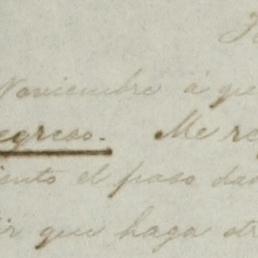 Noviembre á
egreso. Me re
ento el paso da
ir que haga otr